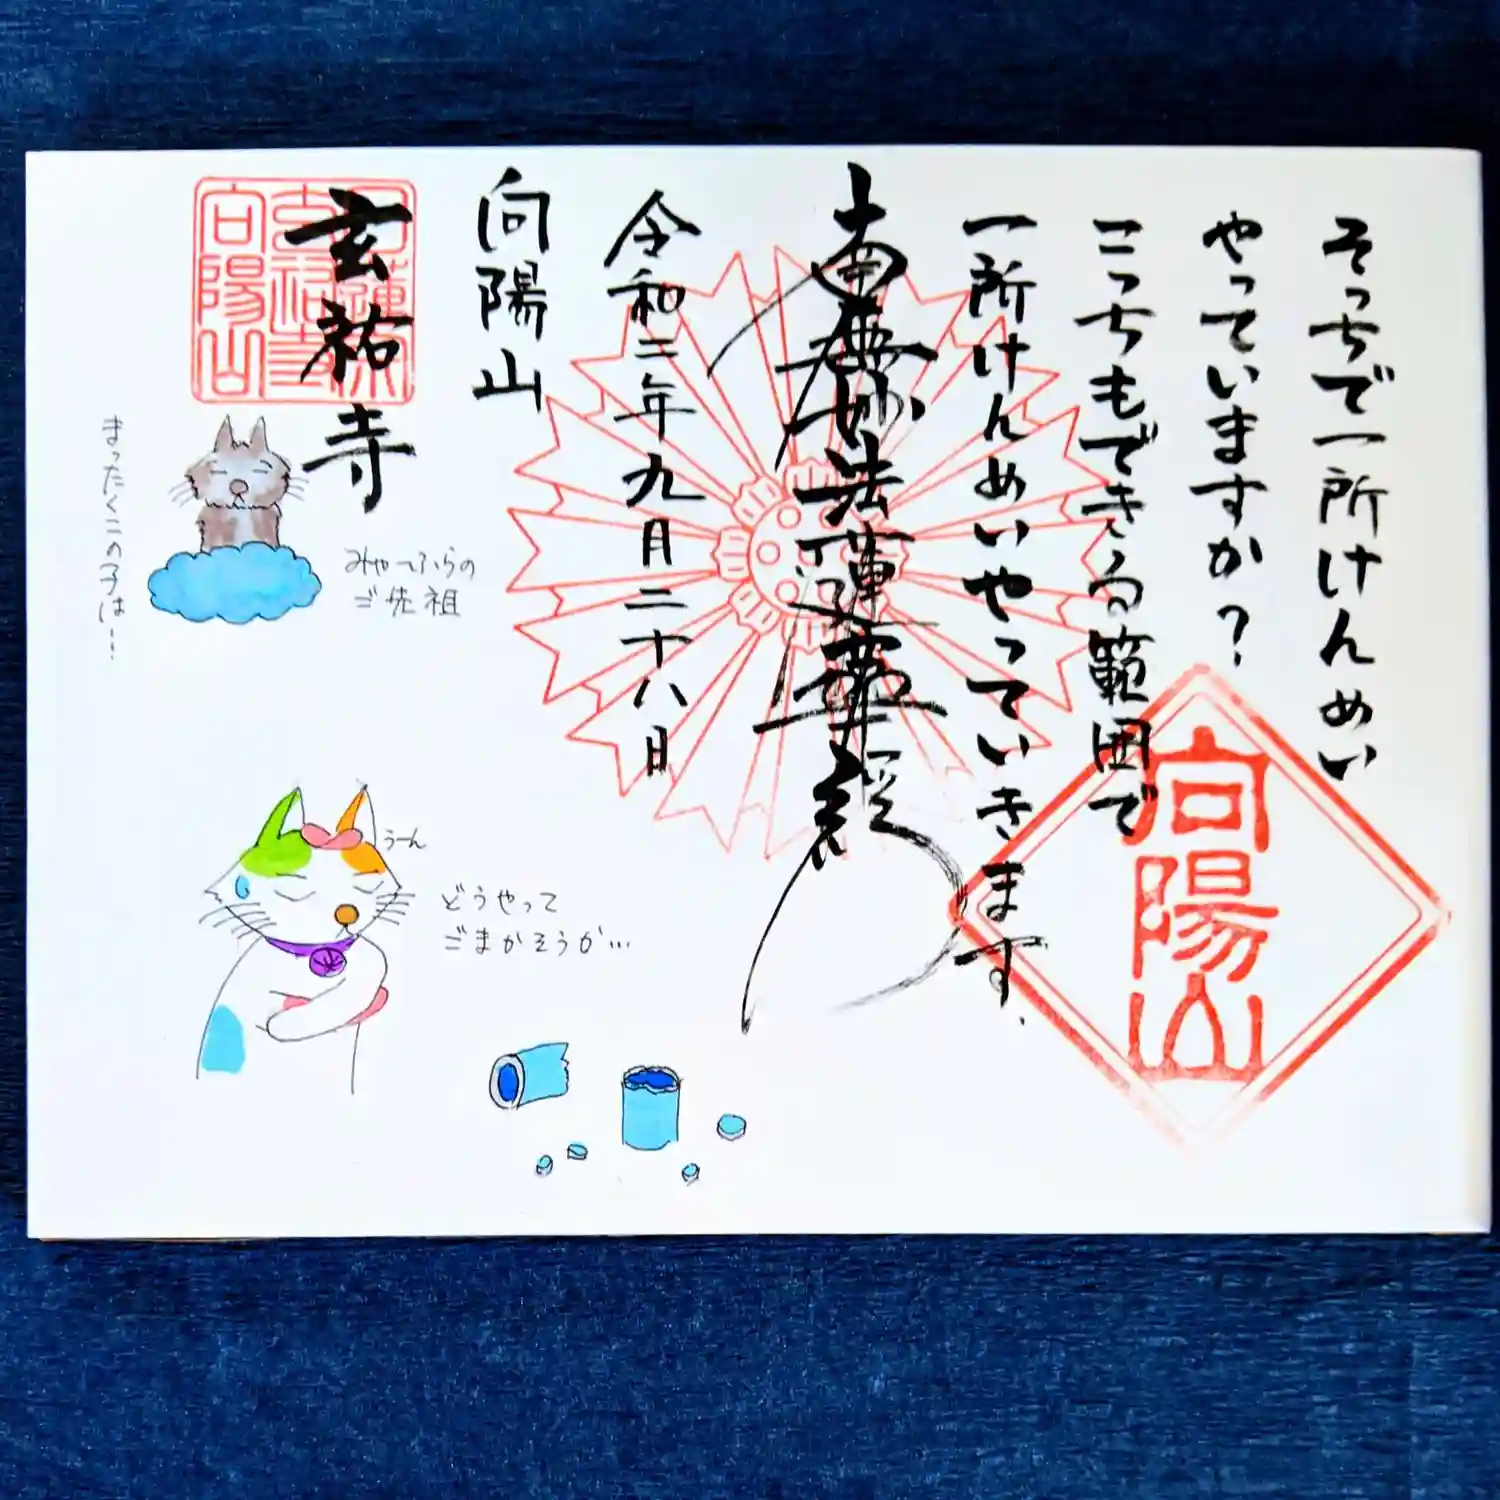 そっちで一所けんめい
やっていますか？
こっちもできる範囲で
一所けんめいやっていきます.
南無妙法蓮華経
令和二年九月二十八日
向陽山
玄祐寺
向陽山
みゃーふらの
ご先祖
まったくこの子は…!
うーん
どうやって
ごまかそうか…
向陽山